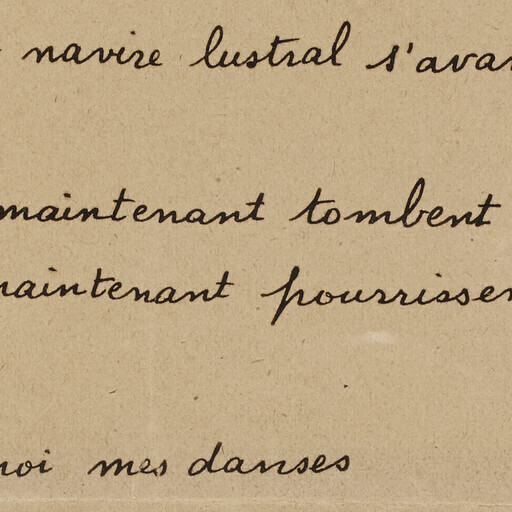 navire lustral s'avan
maintenant tombent
maintenant pourrissen
moi mes danses